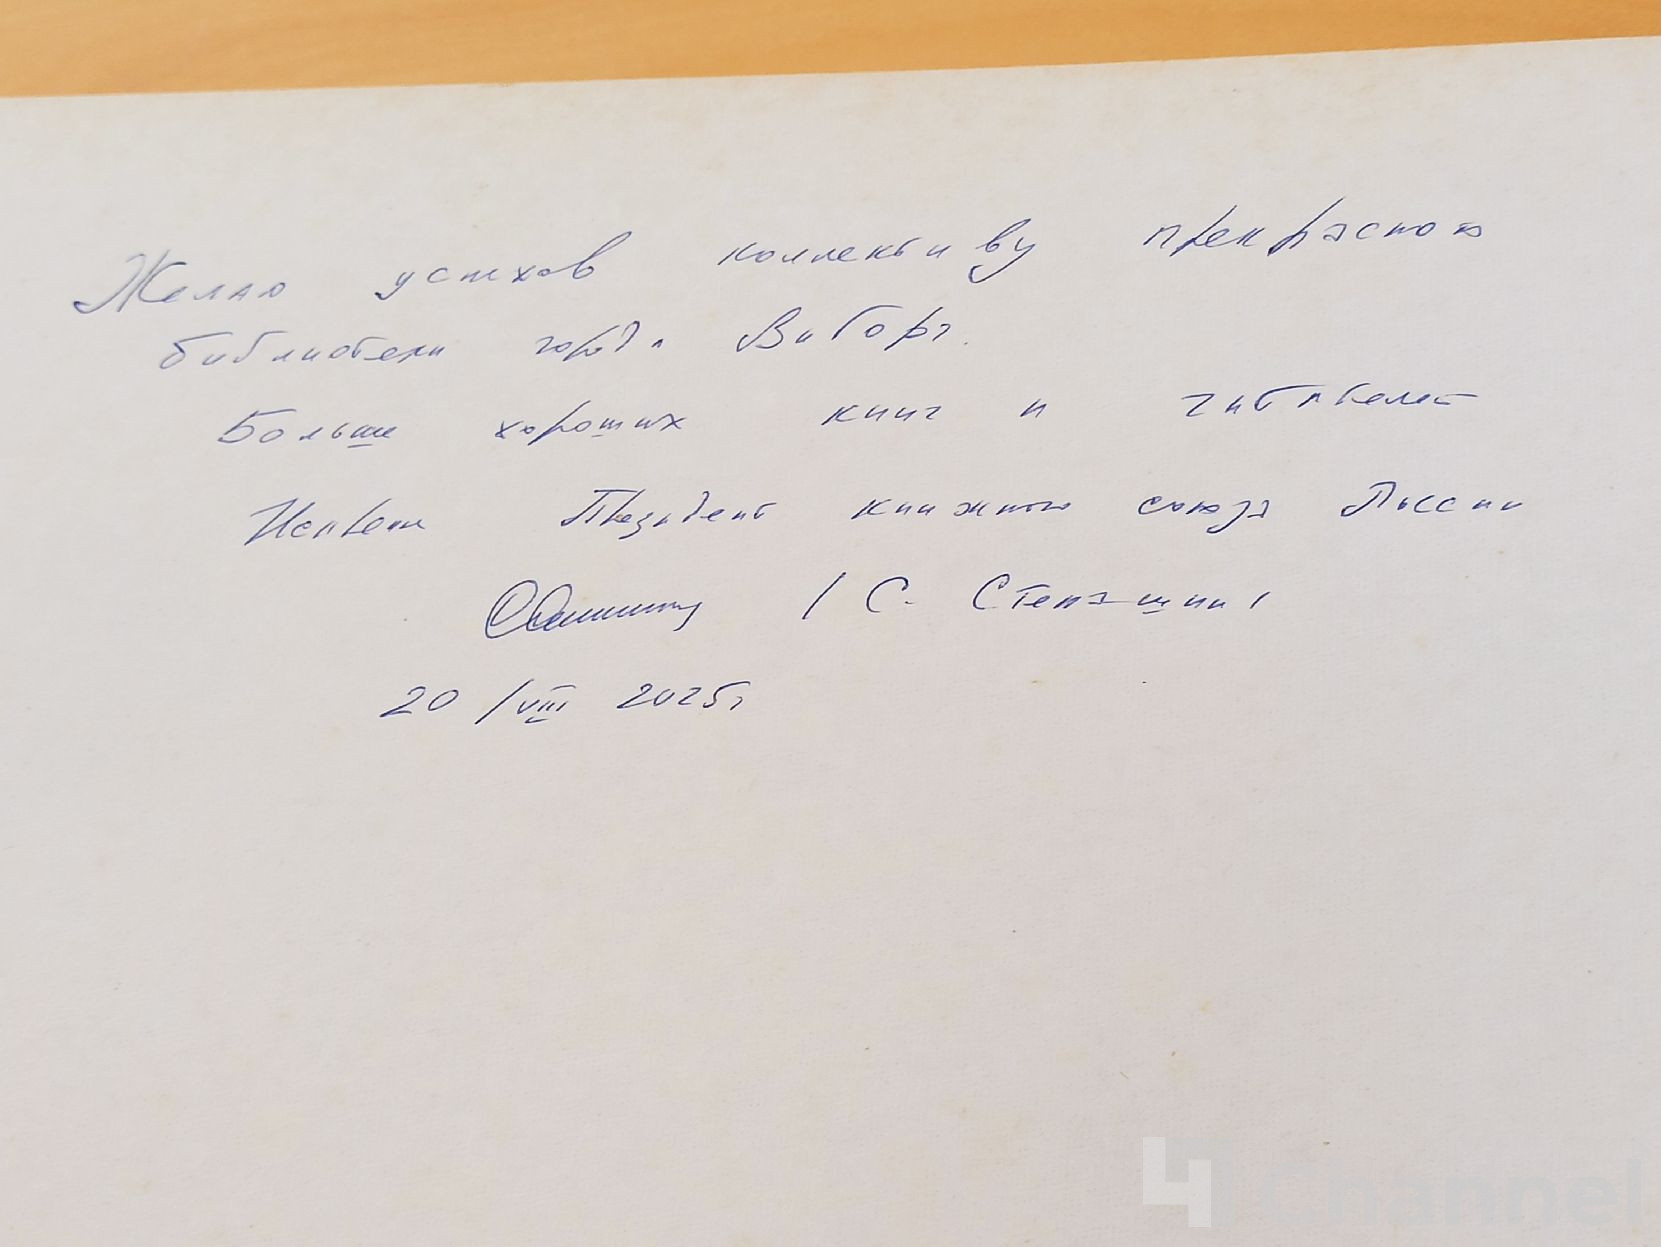 Желаю успехов коллективу прекрасной
библиотеки города Выборга.
Больше хороших книг и читателей
Президент книжного союза России
/ С. Степашин /
20 /VIII 2025г
4 Channel